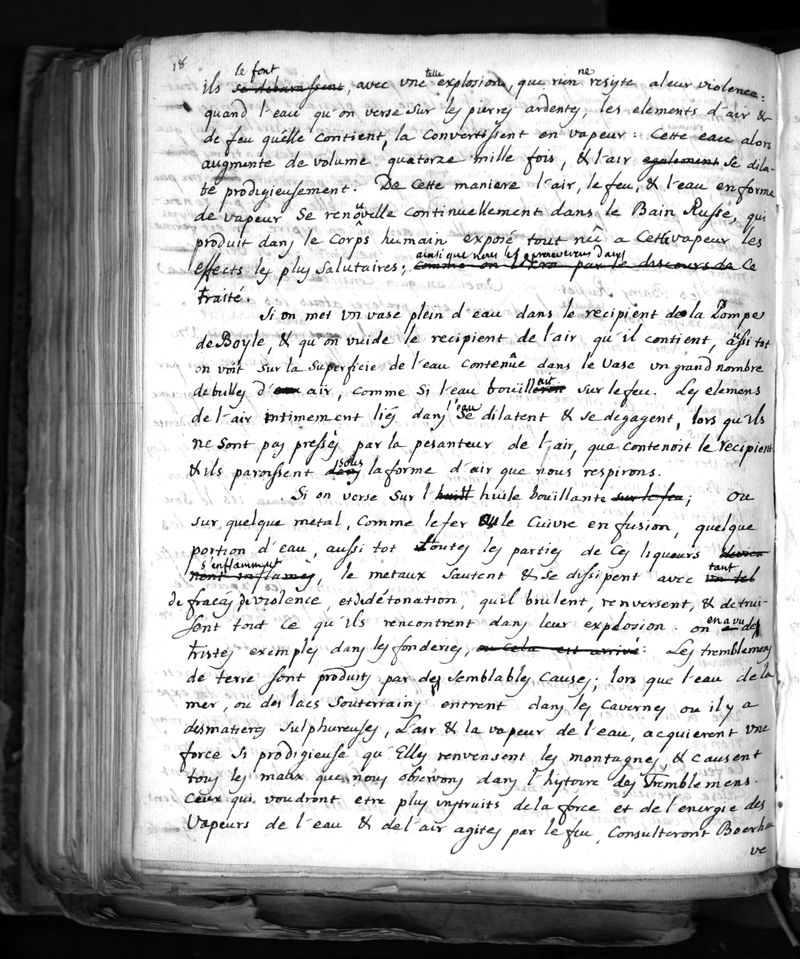 18
ils le font se debarassent, avec une telle explosion, que rien ne resiste a leur violence:
quand l'eau qu'on verse sur les pierres ardentes, les elements d'air &
de feu quelle contient, la convertissent en vapeur: Cette eau alors
augmente de volume quatorze mille fois, & l'air egalement se dila-
te prodigieusement. De Cette maniere l'air, le feu, & l'eau en forme
de vapeur se renouvelle continuellement dans le Bain Russe, qui
produit dans le Corps humain exposé tout nû a Cette vapeur les
effects les plus salutaires; ainsi que nous les prouverons dans comme on verra par le discours de Ce
traité.
Si on met un vase plein d'eau dans le recipient de la Pompe
de Boyle, & qu'on vuide le recipient de l'air qu'il contient, aussi tot
on voit sur la superficie de l'eau contenüe dans le Vase un grand nombre
de bulles d'eau air, comme si l'eau bouilleroit sur le feu. Les elemens
de l'air intimement liés dans l'eau se dilatent & se degagent, lors qu'ils
ne sont pas pressés par la pesanteur de l'air, que contenoit le recipient
& ils paroissent dans sous la forme d'air que nous respirons.
Si on verse sur l'huill huile bouillante sur le feu; ou
sur quelque metal, comme le fer ou le Cuivre en fusion, quelque
portion d'eau, aussi tot toutes les parties de Ces liqueurs devien
nent inflamés s'enflamment, le metaux sautent & se dissipent avec un tel tant
de fracas, de violence, et de détonation, quil brulent, renversent, & detrui-
sent tout ce qu'ils rencontrent dans leur explosion. on en a vu des
tristes exemples dans les fonderies, ou cela est arrivé: Les tremblemens
de terre sont produits par des semblables Causes; lors que l'eau de la
mer, ou des lacs souterrains entrent dans les Cavernes ou il y a
des matieres sulphureuses, L'air & la vapeur de l'eau, acquierent une
force si prodigieuse qu'Elles renversent les montagnes, & causent
tous les maux que nous observons dans l'hystoire des Tremblemens.
Ceux qui voudront etre plus instruits de la force et de l'energie des
Vapeurs de l'eau & de l'air agités par le feu, Consulteront Boerha
ve